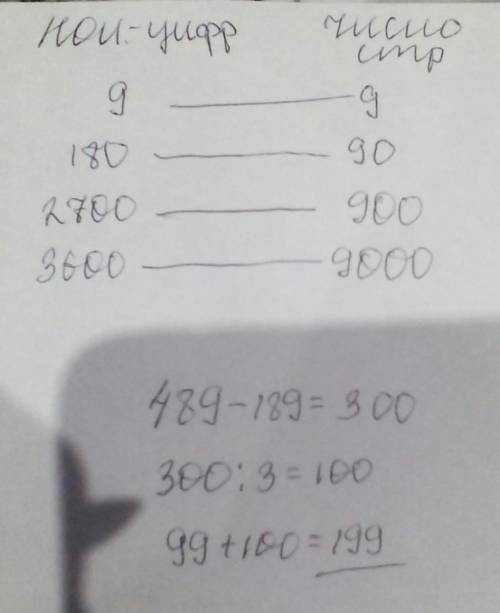 кол-цифр число стр
9 — 9
180 — 90
2700 — 900
3600 — 9000
489-189=300
300:3=100
99+100=199